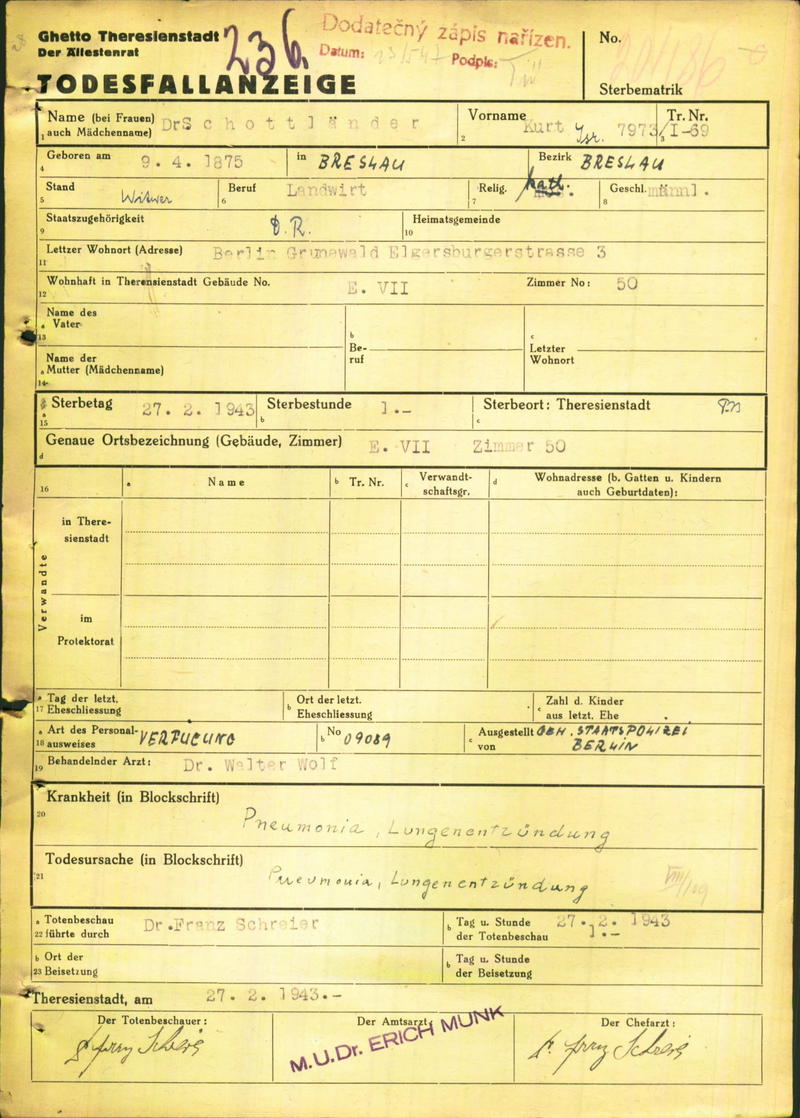 Ghetto Theresienstadt
Der Ältestenrat
236
Dodatečný zápis nařízen.
Datum: Podpis:
No.
Sterbematrik
TODESFALLANZEIGE
Name (bei Frauen) auch Mädchenname) Dr Schottländer
1
Vorname Kurt Isr.
2
Tr. Nr. 7973/I-69
3
Geboren am 9. 4. 1875 in BRESLAU Bezirk BRESLAU
4
Stand Witwer Beruf Landwirt Relig. kath. Geschl. männl.
5 6 7 8
Staatszugehörigkeit D.R. Heimatsgemeinde
9 10
Lettzer Wohnort (Adresse) Berlin Grunewald Elgersburgerstrasse 3
11
Wohnhaft in Theresienstadt Gebäude No. E. VII Zimmer No: 50
12
Name des
a Vater
13
b Beruf
c Letzter Wohnort
Name der
a Mutter (Mädchenname)
14
Sterbetag 27. 2. 1943 Sterbestunde 1.- Sterbeort: Theresienstadt
15 a b c
Genaue Ortsbezeichnung (Gebäude, Zimmer) E. VII Zimmer 50
d
16 a Name b Tr. Nr. c Verwandtschaftsgr. d Wohnadresse (b. Gatten u. Kindern auch Geburtdaten):
Verwandte
in Theresienstadt
im Protektorat
a Tag der letzt.
17 Eheschliessung
b Ort der letzt. Eheschliessung
c Zahl d. Kinder aus letzt. Ehe
a Art des Personal-
18 ausweises
b No 09089
c Ausgestellt von GEH. STAATSPOLIZEI BERLIN
19 Behandelnder Arzt: Dr. Walter Wolf
Krankheit (in Blockschrift)
20
Pneumonia, Lungenentzündung
Todesursache (in Blockschrift)
21
Pneumonia, Lungenentzündung
a Totenbeschau
22 führte durch Dr. Franz Schreier
b Tag u. Stunde der Totenbeschau 27. 2. 1943 1.-
b Ort der
23 Beisetzung
b Tag u. Stunde der Beisetzung
Theresienstadt, am 27. 2. 1943.-
Der Totenbeschauer:
Der Amtsarzt:
Der Chefarzt:
M.U.Dr. ERICH MUNK